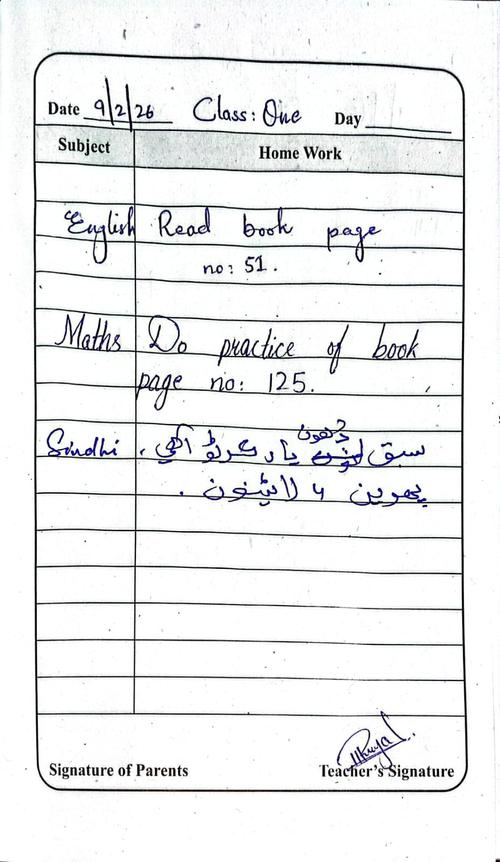 Date 9/2/26 Class: One Day
Subject Home Work
English Read book page
no: 51.
Maths Do practice of book
page no: 125.
ڏهون
Sindhi سبق ياد ڪرڻو آهي.
پهريون 4 لائينون.
Signature of Parents Teacher's Signature